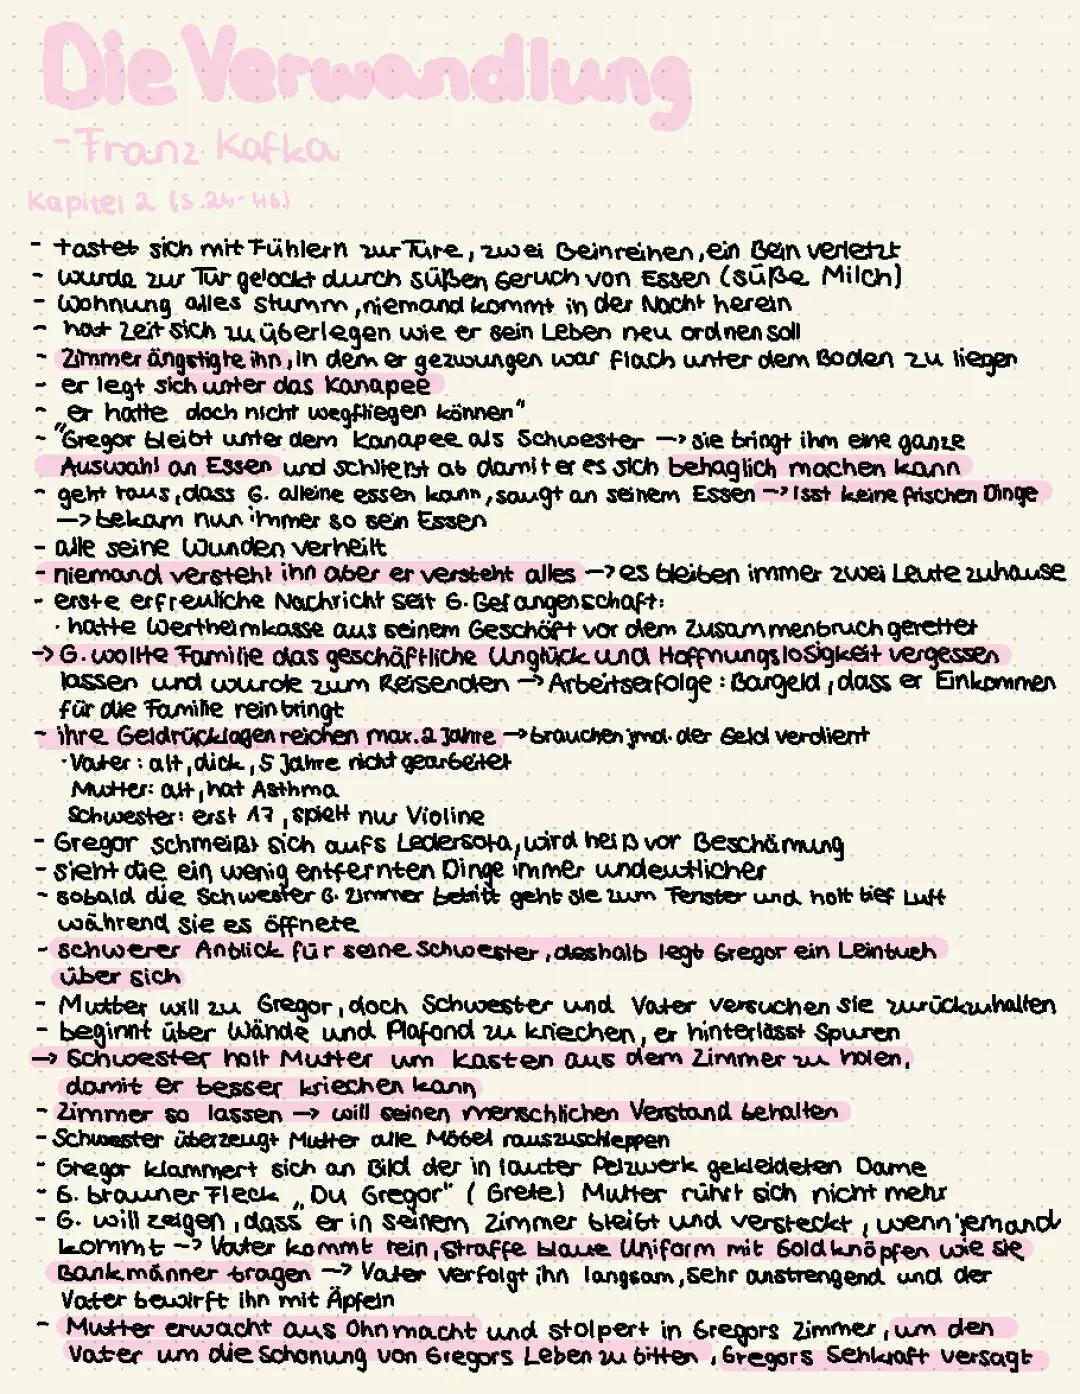 Die Verwandlung
-Franz Kafka
Kapitel 2 (S.24-46)
- tastet sich mit Fühlern zur Türe, zwei Beinreihen, ein Bein verletzt
- wurde zur Tür gelockt durch süßen Geruch von Essen (süße Milch)
- Wohnung alles stumm, niemand kommt in der Nacht herein
- hat Zeit sich zu überlegen wie er sein Leben neu ordnen soll
- Zimmer ängstigte ihn, in dem er gezwungen war flach unter dem Boden zu liegen
- er legt sich unter das Kanapee
- er hatte doch nicht wegfliegen können"
- "Gregor bleibt unter dem Kanapee als Schwester -> sie bringt ihm eine ganze
Auswahl an Essen und schließt ab damit er es sich behaglich machen kann
- geht raus, dass G. alleine essen kann, saugt an seinem Essen -> isst keine frischen Dinge
-> bekam nun immer so sein Essen
- alle seine Wunden verheilt
- niemand versteht ihn aber er versteht alles -> es bleiben immer zwei Leute zuhause
- erste erfreuliche Nachricht seit G. Gefangenschaft:
· hatte Wertheimkasse aus seinem Geschäft vor dem Zusammenbruch gerettet
-> G. wollte Familie das geschäftliche Unglück und Hoffnungslosigkeit vergessen
lassen und wurde zum Reisenden -> Arbeitserfolge: Bargeld, dass er Einkommen
für die Familie reinbringt
- ihre Geldrücklagen reichen max. 2 Jahre -> brauchen jmd. der Geld verdient
· Vater: alt, dick, 5 Jahre nicht gearbeitet
Mutter: alt, hat Asthma
Schwester: erst 17, spielt nur Violine
- Gregor schmeißt sich aufs Ledersofa, wird heiß vor Beschämung
- sieht die ein wenig entfernten Dinge immer undeutlicher
- sobald die Schwester G. Zimmer betritt geht sie zum Fenster und holt tief Luft
während sie es öffnete
- schwerer Anblick für seine Schwester, deshalb legt Gregor ein Leintuch
über sich
- Mutter will zu Gregor, doch Schwester und Vater versuchen sie zurückzuhalten
- beginnt über Wände und Plafond zu kriechen, er hinterlässt Spuren
-> Schwester holt Mutter um Kasten aus dem Zimmer zu holen,
damit er besser kriechen kann
- Zimmer so lassen -> will seinen menschlichen Verstand behalten
- Schwester überzeugt Mutter alle Möbel rauszuschleppen
- Gregor klammert sich an Bild der in lauter Pelzwerk gekleideten Dame
- G. brauner Fleck „Du Gregor" (Grete) Mutter rührt sich nicht mehr
- G. will zeigen, dass er in seinem Zimmer bleibt und versteckt, wenn jemand
kommt -> Vater kommt rein, straffe blaue Uniform mit Goldknöpfen wie sie
Bankmänner tragen -> Vater verfolgt ihn langsam, sehr anstrengend und der
Vater bewirft ihn mit Äpfeln
- Mutter erwacht aus Ohnmacht und stolpert in Gregors Zimmer, um den
Vater um die Schonung von Gregors Leben zu bitten, Gregors Sehkraft versagt